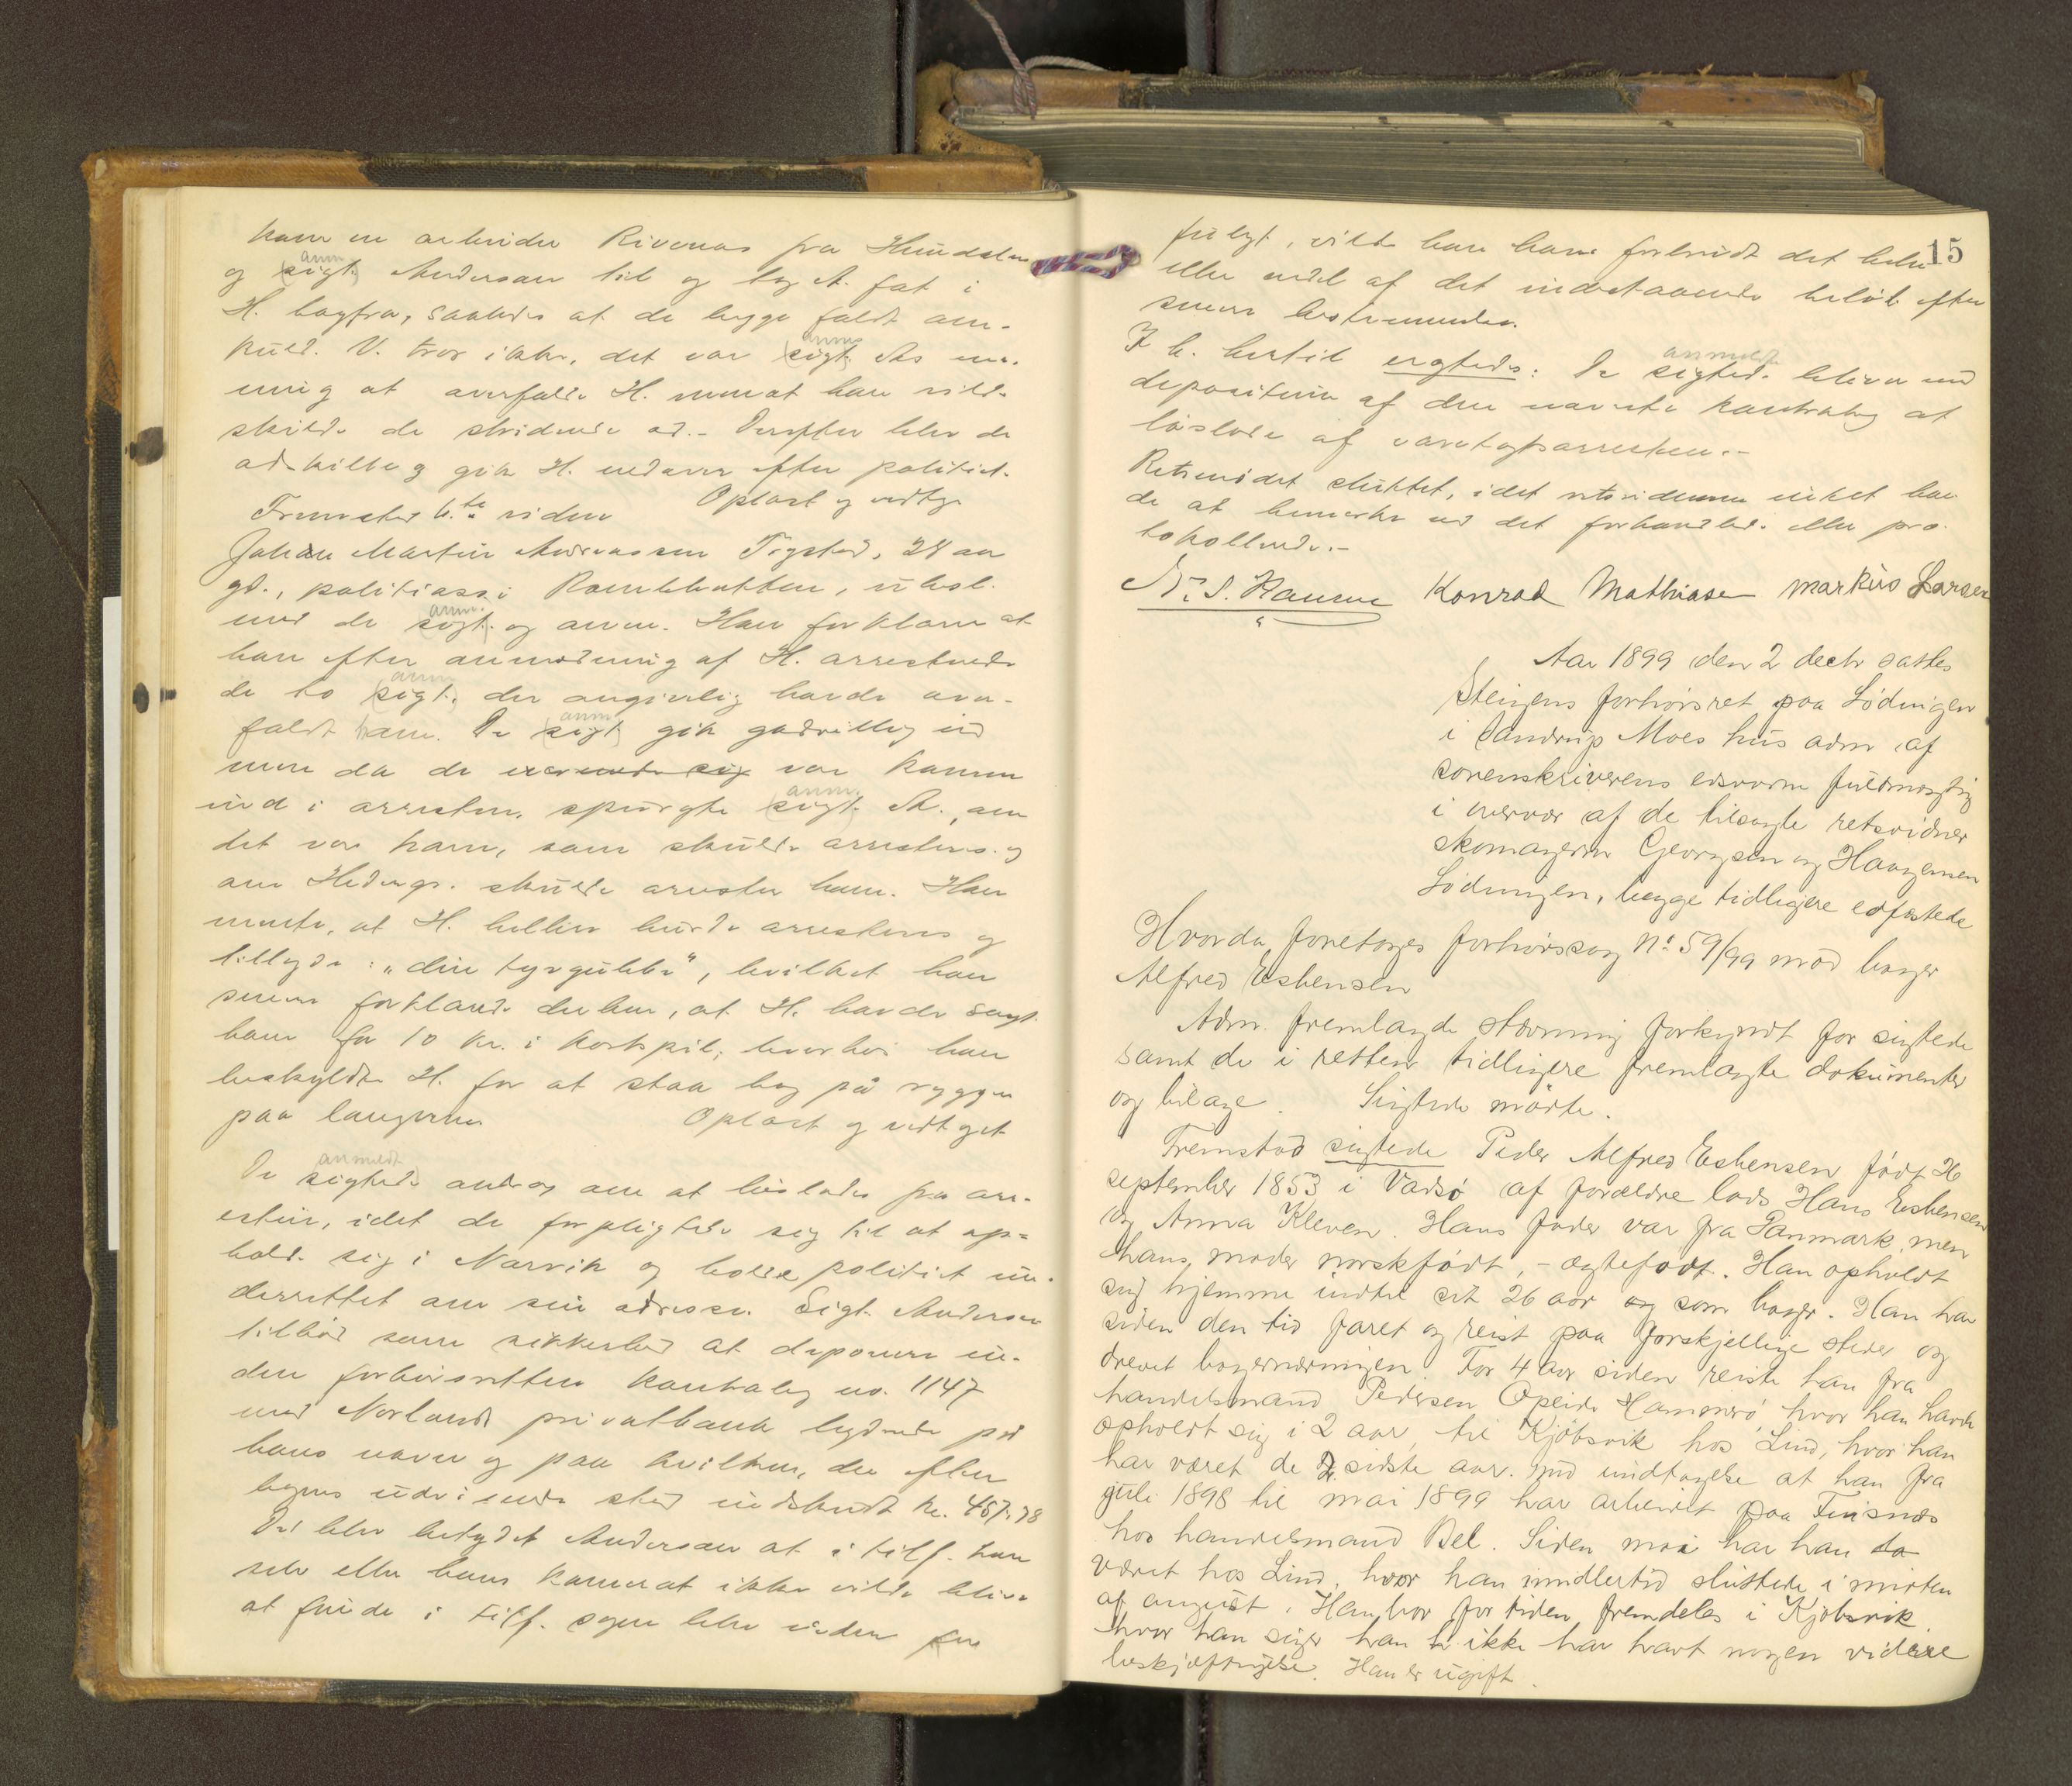 kom en arbeider Rivenas fra Hundalen
og sigt. anm Andersen til og tog A. fat i
H. bagfra, saaledes at de begge faldt om-
kuld. V. tror ikke, det var sigt. anm As me-
ning at overfalde H. men at han vilde
skille de stridende ad.- Derefter blev de
adskilt og gik H. nedover efter politiet.
Oplæst og vedtaget
Fremstod 6.te vidne
Johan Martin Andreassen Togstad, 28 aar
gl., politiass. i Rombakbotten, ubesl.
med de sigt. anm. og anm. Han forklarer at
han efter anmodning af H. arresterede
de to sigt. anm der angivelig havde over-
faldt ham. De sigt anm gik godvillig ind
men da de var kommen
ind i arresten, spurgte sigt. anm. A., om
det var ham, som skulde arresteres og
om Hedengr. skulde arrestere ham. Han
mente, at H. heller burde arresteres og
tillagde: „din tyvgubbe", hvilket han
senere forklarede derhen, at H. havde tagt
ham for 10 kr. i kortspil, hvorhos han
beskyldte H. for at staa bag på ryggen
paa langerne Oplæst og vedtaget
De sigtede anmeldt androg om at løslades fra arr-
esten, idet de forpligtede sig til at op-
holde sig i Narvik og holde politiet un-
derrettet om sin adresse. Sigt. Andersen
tilbød som sikkerhed at deponere in-
den forhørsretten kontrabog no. 1147
med Norlands privatbank lydende på
hans navn og paa hvilken, der efter
bogens udvisende stod indskudt kr. 467.78
Det blev betydet Andersen at i tilf. han
selv eller hans kamerat ikke vilde blive
at finde i tilf. sagen blev videre for
15
fulgt, vilde han have forbrudt det hele
eller endel af det indestaaende beløb efter
senere bestemmelse.
I h. hertil eragtedes: De sigtede anmeldt bliver mod
depositum af den nævnte kontrabog at
løslade af varetægtsarresten.-
Retsmødet sluttet, idet retsvidnerne intet hav-
de at bemerke ved det forhandlede eller pro-
tokollerede.-
Konrad Mathiasen Markus Larsen
Aar 1899 den 2 decbr sattes
Steigens forhørsret paa Lødingen
i Sandrup Moes hus adm af
sorenskriverens edsvorne fuldmægtig
i overvær af de tilsagte retsvidner
skomagerne Georgsen og Haagensen
Lødingen, begge tidligere edfæstede
Hvorda foretoges forhørssag No 59/99 mod bager
Alfred Esbensen
Adm. fremlagde stævning forkyndt for sigtede
samt de i retten tidligere fremlagte dokumenter
og bilage. Sigtede mødte.
Fremstod sigtede Peder Alfred Esbensen født 26
september 1853 i Vadsø af forældre lods Hans Esbensen
og Anna Kleven. Hans fader var fra Danmark, men
hans moder norskfødt, - ægtefødt. Han opholdt
sig hjemme indtil sit 26 aar og som bager. Han har
siden den tid faret og reist paa forskjellige steder og
drevet bagernæringen. For 4 aar siden reiste han fra
handelsmand Pedersen Opeide Hammerø hvor han havde
opholdt sig i 2 aar, til Kjøbsvik hos Lind, hvor han
har været de 2 sidste aar. med undtagelse at han fra
juli 1898 til mai 1899 har arbeidet paa Finsnæs
hos handelsmand Bel. Siden mai har han da
været hos Lind, hvor han imidlertid sluttede i midten
af august. Han bor for tiden fremdeles i Kjøbsvik
hvor han siger han h ikke har havt nogen videre
beskjæftigelse. Han er ugift.